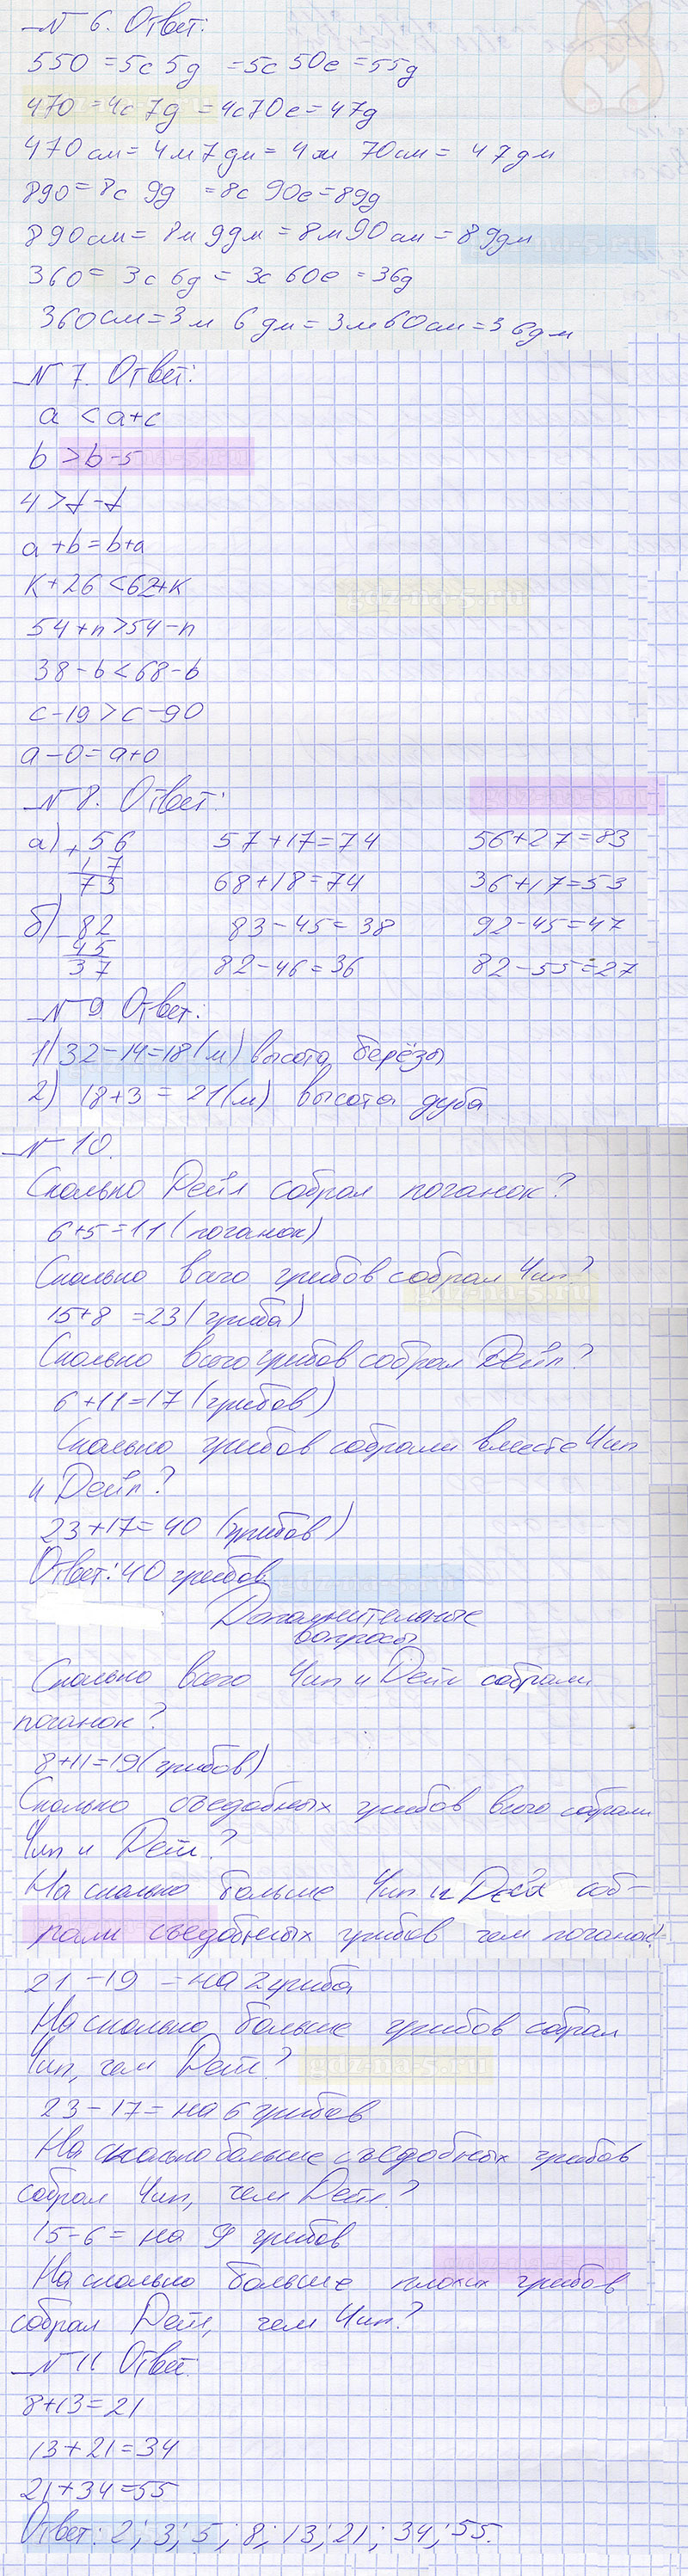 № 6. Ответ:
550 = 5с 5д = 5с 50е = 55д
470 = 4с 7д = 4с70е = 47д
470 см = 4 м 7 дм = 4 м 70 см = 47 дм
890 = 8с 9д = 8с 90е = 89д
890 см = 8м 9дм = 8м 90 см = 89дм
360 = 3с 6д = 3с 60е = 36д
360 см = 3 м 6 дм = 3м 60 см = 36дм
№ 7. Ответ:
a < a+c
b > b-5
4 > t-t
a+b = b+a
k+26 < 62+k
54+n > 54-n
38-b < 68-b
c-19 > c-90
a-0 = a+0
№ 8. Ответ:
а) + 56 57+17=74 56+27=83
17
73 68+18=74 36+17=53
б) - 82 83-45=38 92-45=47
45
37 82-46=36 82-55=27
№ 9 Ответ:
1) 32-14=18(м) высота берёзы
2) 18+3 = 21(м) высота дуба
№ 10.
Сколько Дейл собрал поганок?
6+5=11 (поганок)
Сколько всего грибов собрал Чип?
gdz-na-5.ru
15+8 =23 (гриба)
Сколько всего грибов собрал Дейл?
6+11=17 (грибов)
Сколько грибов собрали вместе Чип
и Дейл?
23+17=40 (грибов)
Ответ: 40 грибов.
Дополнительные
вопросы
Сколько всего Чип и Дейл собрали
поганок?
8+11=19(грибов)
Сколько съедобных грибов всего собрали
Чип и Дейл?
На сколько больше Чип и Дейл соб-
рали съедобных грибов чем поганок?
21 -19 = на 2 гриба
На сколько больше грибов собрал
Чип, чем Дейл?
23-17= на 6 грибов
На сколько больше съедобных грибов
собрал Чип, чем Дейл?
15-6= на 9 грибов
На сколько больше плохих грибов
собрал Дейл, чем Чип?
№ 11 Ответ
8+13=21
13+21=34
21+34=55
Ответ: 2; 3; 5; 8; 13; 21; 34; 55.